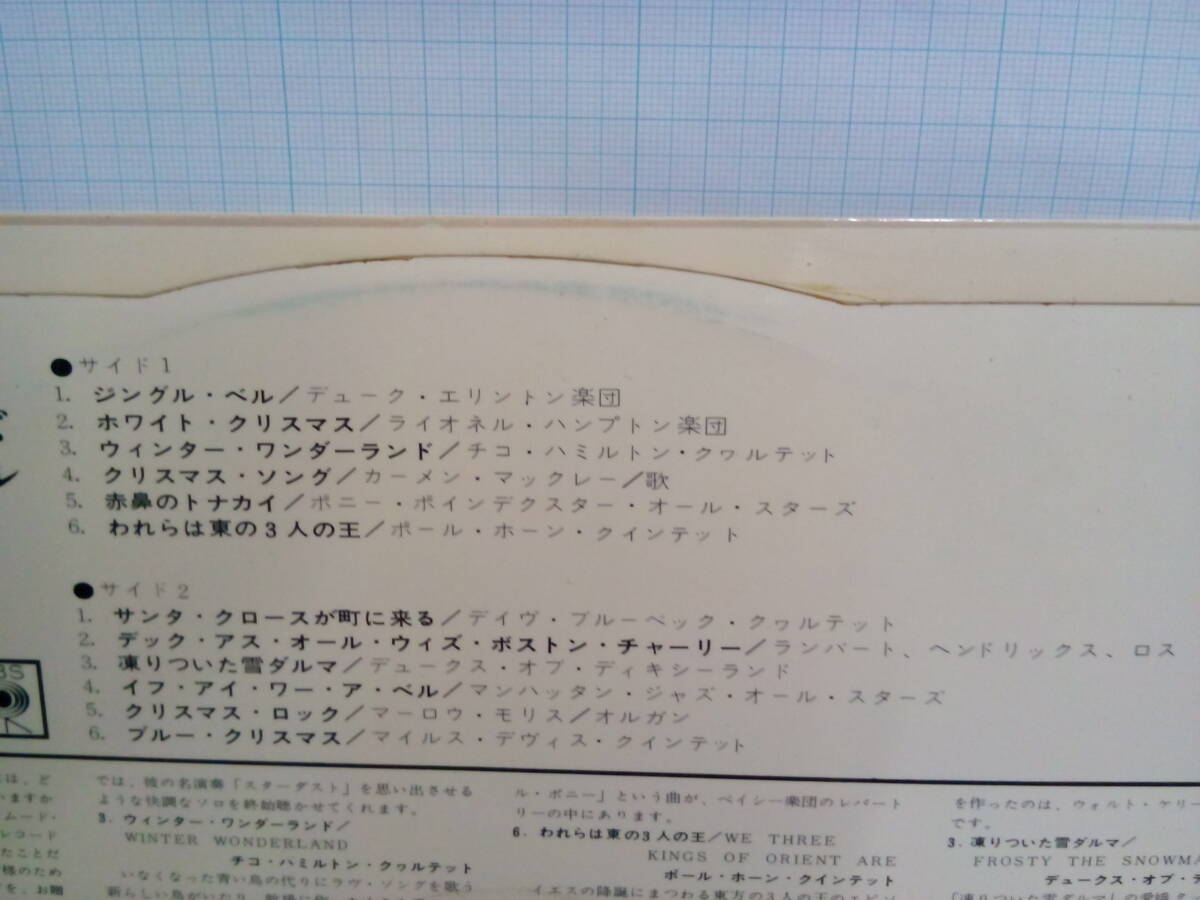 ●サイド1
1. ジングル・ベル/デューク・エリントン楽団
2. ホワイト・クリスマス/ライオネル・ハンプトン楽団
3. ウィンター・ワンダーランド/チコ・ハミルトン・クヮルテット
4. クリスマス・ソング/カーメン・マックレー/歌
5. 赤鼻のトナカイ/ポニー・ポインデクスター・オール・スターズ
6. われらは東の3人の王/ポール・ホーン・クインテット
●サイド2
1. サンタ・クロースが町に来る/デイヴ・ブルーベック・クヮルテット
2. デック・アス・オール・ウィズ・ボストン・チャーリー/ランバート、ヘンドリックス、ロス
3. 凍りついた雪ダルマ/デュークス・オブ・ディキシーランド
4. イフ・アイ・ワー・ア・ベル/マンハッタン・ジャズ・オール・スターズ
5. クリスマス・ロック/マーロウ・モリス/オルガン
6. ブルー・クリスマス/マイルス・デヴィス・クインテット
BS
には、ど
いますか
ムード・
レコード
たことだ
様のため
では、彼の名演奏「スターダスト」を思い出させる
ような快調なソロを終始聴かせてくれます。
3. ウィンター・ワンダーランド/
WINTER WONDERLAND
チコ・ハミルトン・クヮルテット
いなくなった青い鳥の代りにラヴ・ソングを歌う
ル・ボニー」という曲が、ベイシー楽団のレパート
リーの中にあります。
6. われらは東の3人の王/WE THREE
KINGS OF ORIENT ARE
ポール・ホーン・クインテット
イエスの降誕にまつわる東方の3人の王の
を作ったのは、ウォルト・ケリー
です。
3. 凍りついた雪ダルマ/
FROSTY THE SNOWMA
デュークス・オブ・デ